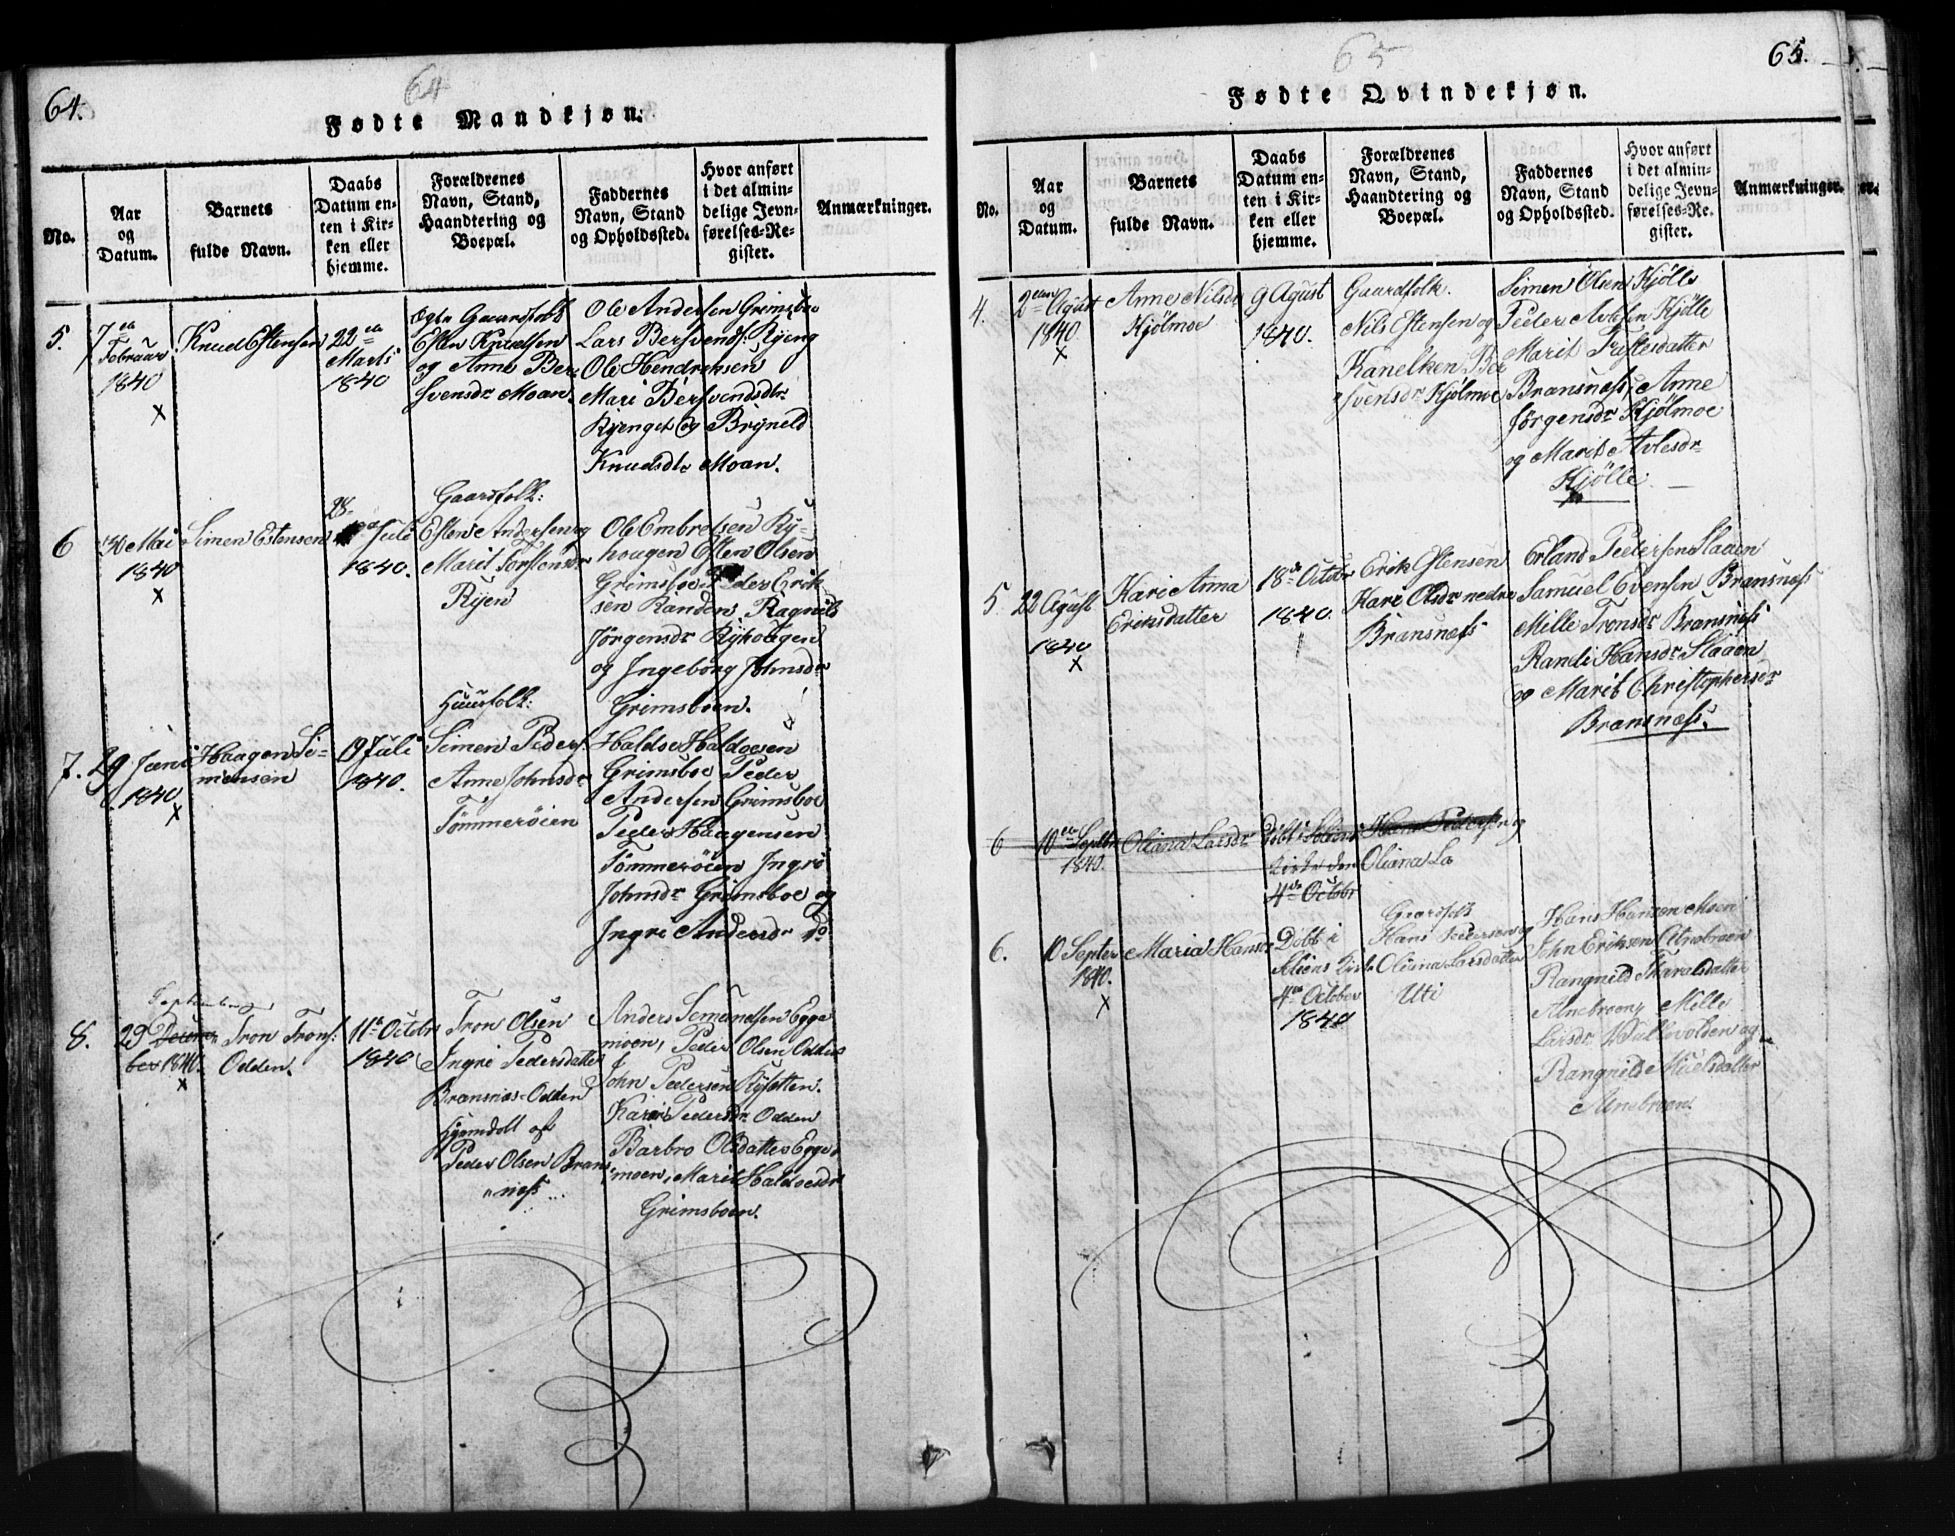 64.
64
Fødte Mandkjøn.
No.
Aar
og
Datum.
Barnets
fulde Navn.
Daabs
Datum en-
ten i Kir-
ken eller
hjemme.
Forældrenes
Navn, Stand,
Haandtering og
Boepæl.
Faddernes
Navn, Stand
og Opholdssted.
Hvor anført
i det almin-
delige Jevn-
førelses-Re-
gister.
Anmærkninger.
5.
7
Februar
1840
x
Knud Estensen
22
Marts
1840
Ægte Gaardfolk
Esten Knudsen
og Anne Ber
Svensdr Moan.
Ole Andersen Grimsboe
Lars Bersvends. Ryeng
Ole Hendreksen
Mari Bersvendsdtr
Ryenget og Bryneld
Knudsdtr Moan.
6
30 Mai
1840
x
Simen Estensen
28
Juli
1840.
Gaardfolk:
Esten Andersen og
Marit Torstensdr
Ryen
Ole Embretsen Ry-
hougen Esten Olsen
Grimsboe Peder Erik
sen Randen, Ragnild
Jørgensdr Ryhougen
og Ingeborg Johnsdr
Grimsboen.
7.
29 Juni
1840
x
Haagen Si-
mensen
19 Juli
1840.
Huusfolk:
Simen Peders.
Anne Johnsdr
Tømmerøien
Haldoe Haldoesen
Grimsboe Peder
Andersen Grimsboe
Peder Haagensen
Tømmerøien Ingri
Johnsdr Grimsboe og
Ingri Andersdr do
8.
September
29 Decem
ber 1840.
x
Tron Trons.
Odden.
11t Octobr
1840
Tron Olsen
Ingri Pedersdatter
Bransnes-Odden
Hjemdøbt af
Peder Olsen Brans
"næss
Anders Semundsen Egge
moen, Peder Olsen Odden
John Pedersen Rysletten.
Kari Pedersdr Odden
Barbro Olsdatter Egge
moen, Marit Haldoesdr
Grimsboen.
65
65.
Fødte Qvindekjøn.
No.
Aar
og
Datum.
Barnets
fulde Navn.
Daabs
Datum en-
ten i Kir-
ken eller
hjemme.
Forældrenes
Navn, Stand,
Haandtering og
Boepæl.
Faddernes
Navn, Stand
og Opholdssted.
Hvor anført
i det almin-
delige Jevn-
førelses-Re-
gister.
Anmærkninger.
4.
2den Agust
1840
x
Anne Nilsdr
Kjølmoe
9 Agust
1840.
Gaardfolk.
Nils Estensen og
Kanelken Ber
"svensdr Kjølmoe
Simen Olsen Kjølle
Peder Avlesen Kjølle
Marit
Bransness, Anne
Jørgensdr Kjølmoe
og Marit Avlesdr
Kjølle
5
22 Agust
1840
x
Kari Anna
Eriksdatter
18de Octobr
1840.
Erik Estensen
Kari Olsdr nedre
Bransness
Erland Pedersen Slaaen
Samuel Evensen Bransness
Mille Tronsdr Bransness
Randi Hansdr Slaaen
og Marit Christophersdr
Bransness.
6
10 Septbr
1840.
Oliana Larsdr
Døbt i Soliens
Kirke den
4de Octobr
Hans Pedersen og
Oliana La
6.
10 Septer
1840.
x
Maria Hansdr
Døbt i
Soliens Kirke
4de October
1840
Gaardfolk
Hans Pedersen og
Oliana Larsdatter
Uti
Hans Hansen Moen
John Eriksen Atnebroen
Rangnild Tharalsdatter
Atnebroen, Mille
Larsdr Wullevolden og
Rangnild
Atnebroen.